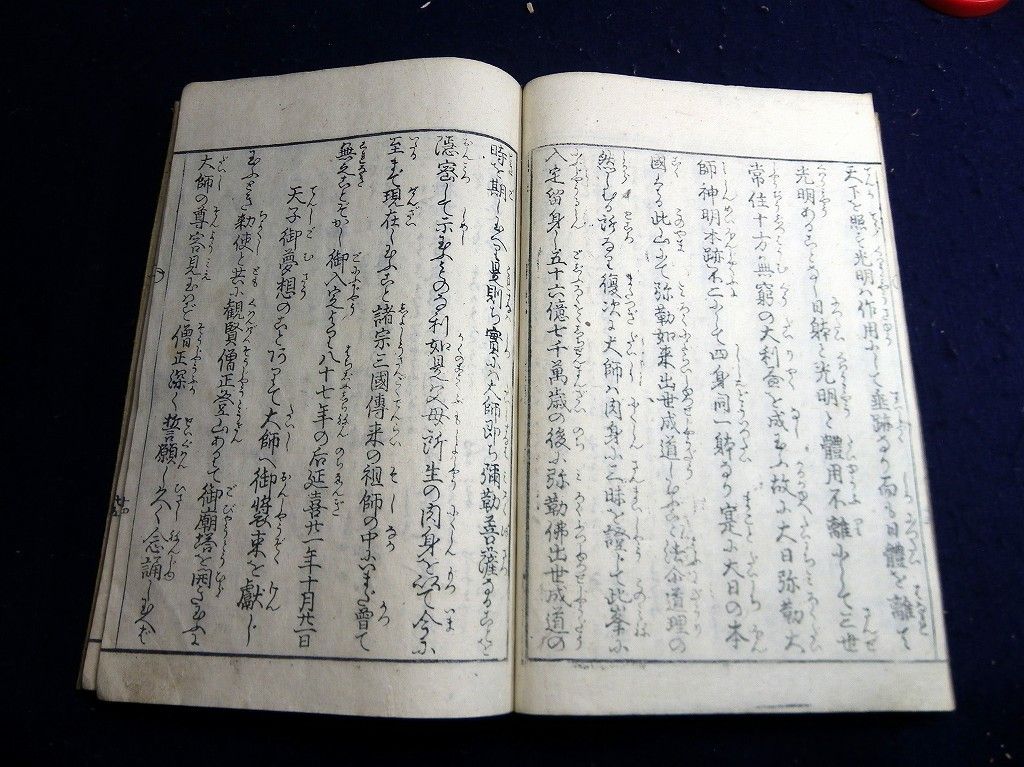 天下を照す光明ハ作用にして垂跡なり而るに日體を離て
光明あることなし日躰と光明と體用不離にして三世
常住十方無窮の大利益を成玉ふ故に大日弥勒大
師神明本跡不二にして四身同一躰なり寔に大日の本
國なる此山にて弥勒如来出世成道し玉ふこと法尓道理の
然しむる所なり復次に大師ハ肉身に三昧を證して此峯に
入定留身し五十六億七千萬歳の後に弥勒佛出世成道の
時を期し玉へり是則ち實に大師即ち彌勒菩薩なることを
隠密して示玉ふものなり如是父母所生の肉身を以て今に
至まで現在し玉ふこと諸宗三國傳来の祖師の中にいまだ曾て
無ことぞかし御入定より八十七年の后延喜廿一年十月廿一日
天子御夢想のことありて大師へ御装束を獻じ
玉ふとき勅使と共に観賢僧正登山ありて御廟塔を開き玉ふに
大師の尊容見玉はず僧正深く誓願し久く念誦し玉へば